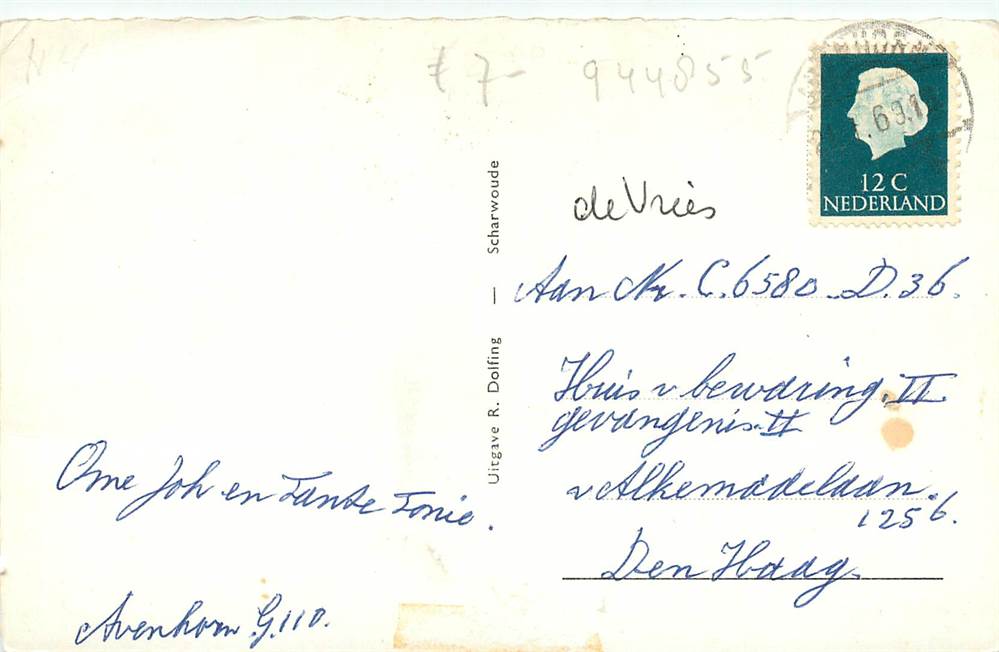 € 7- 944855
12 C
NEDERLAND
de Vries
Aan Nr. C. 6580 D. 36.
Huis v bewaring. II
gevangenis. II
v Alkemadelaan.
1256.
Den Haag.
Ome Joh en Tante Tonie.
Avenhorn G. 110.
Uitgave R. Dolfing — Scharwoude